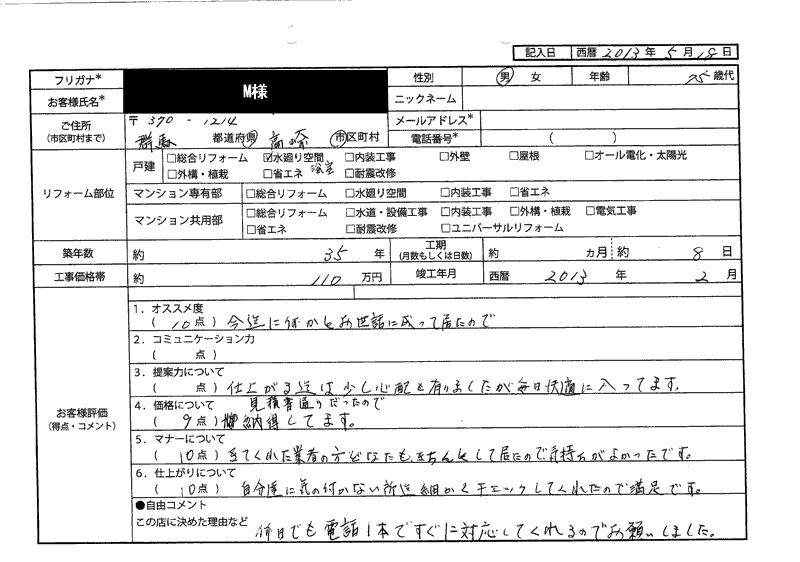 記入日 西暦 2013 年 5 月 18 日
フリガナ* M様 性別 男 女 年齢 75 歳代
お客様氏名* ニックネーム
ご住所 〒 370 - 1214 メールアドレス*
(市区町村まで) 群馬 都道府県 高崎 市区町村 電話番号* ( )
リフォーム部位
戸建 □総合リフォーム ☑水廻り空間 □内装工事 □外壁 □屋根 □オール電化・太陽光
□外構・植栽 □省エネ 浴室 □耐震改修
マンション専有部 □総合リフォーム □水廻り空間 □内装工事 □省エネ
マンション共用部 □総合リフォーム □水道・設備工事 □内装工事 □外構・植栽 □電気工事
□省エネ □耐震改修 □ユニバーサルリフォーム
築年数 約 35 年 工期 (月数もしくは日数) 約 カ月 約 8 日
工事価格帯 約 110 万円 竣工年月 西暦 2013 年 2 月
お客様評価
(得点・コメント)
1．オススメ度
( 10 点 ) 今迄に何かとお世話に成って居たので
2．コミュニケーション力
( 点 )
3．提案力について
( 点 ) 仕上がる迄は少し心配も有りましたが毎日快適に入ってます。
4．価格について 見積書通りだったので
( 9 点 ) 納得してます。
5．マナーについて
( 10 点 ) きてくれた業者の方どなたも、きちんとして居たので気持ちがよかったです。
6．仕上がりについて
( 10 点 ) 自分達に気の付かない所迄細かくチェックしてくれたので満足です。
●自由コメント
この店に決めた理由など 何日でも電話1本ですぐに対応してくれるのでお願いしました。